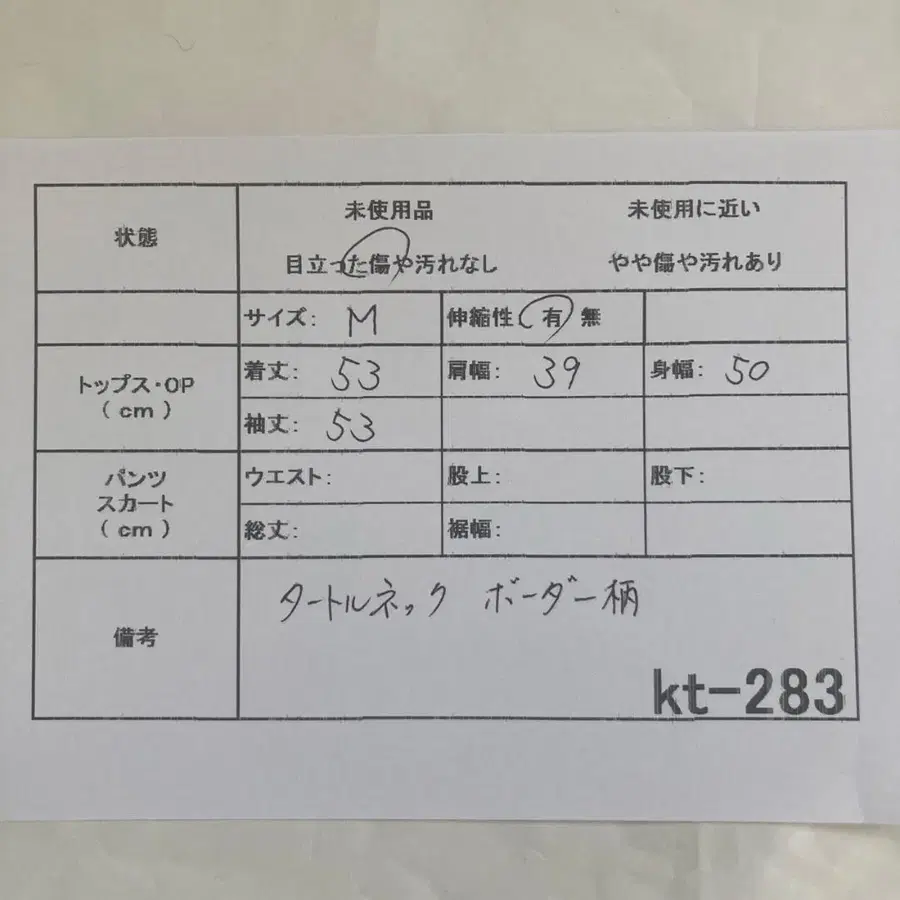 状態
未使用品 未使用に近い
目立った傷や汚れなし やや傷や汚れあり
サイズ: M 伸縮性: 有 無
トップス・OP
(cm)
着丈: 53 肩幅: 39 身幅: 50
袖丈: 53
パンツ
スカート
(cm)
ウエスト: 股上: 股下:
総丈: 裾幅:
備考
タートルネック ボーダー柄
kt-283